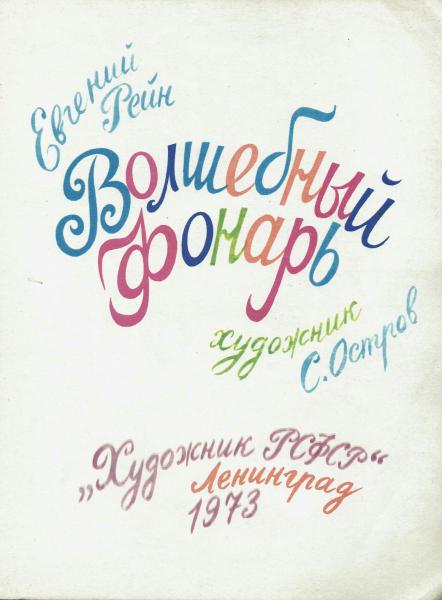 Евгений
Рейн
Волшебный
Фонарь
художник
С. Остров
„Художник РСФСР“
Ленинград
1973